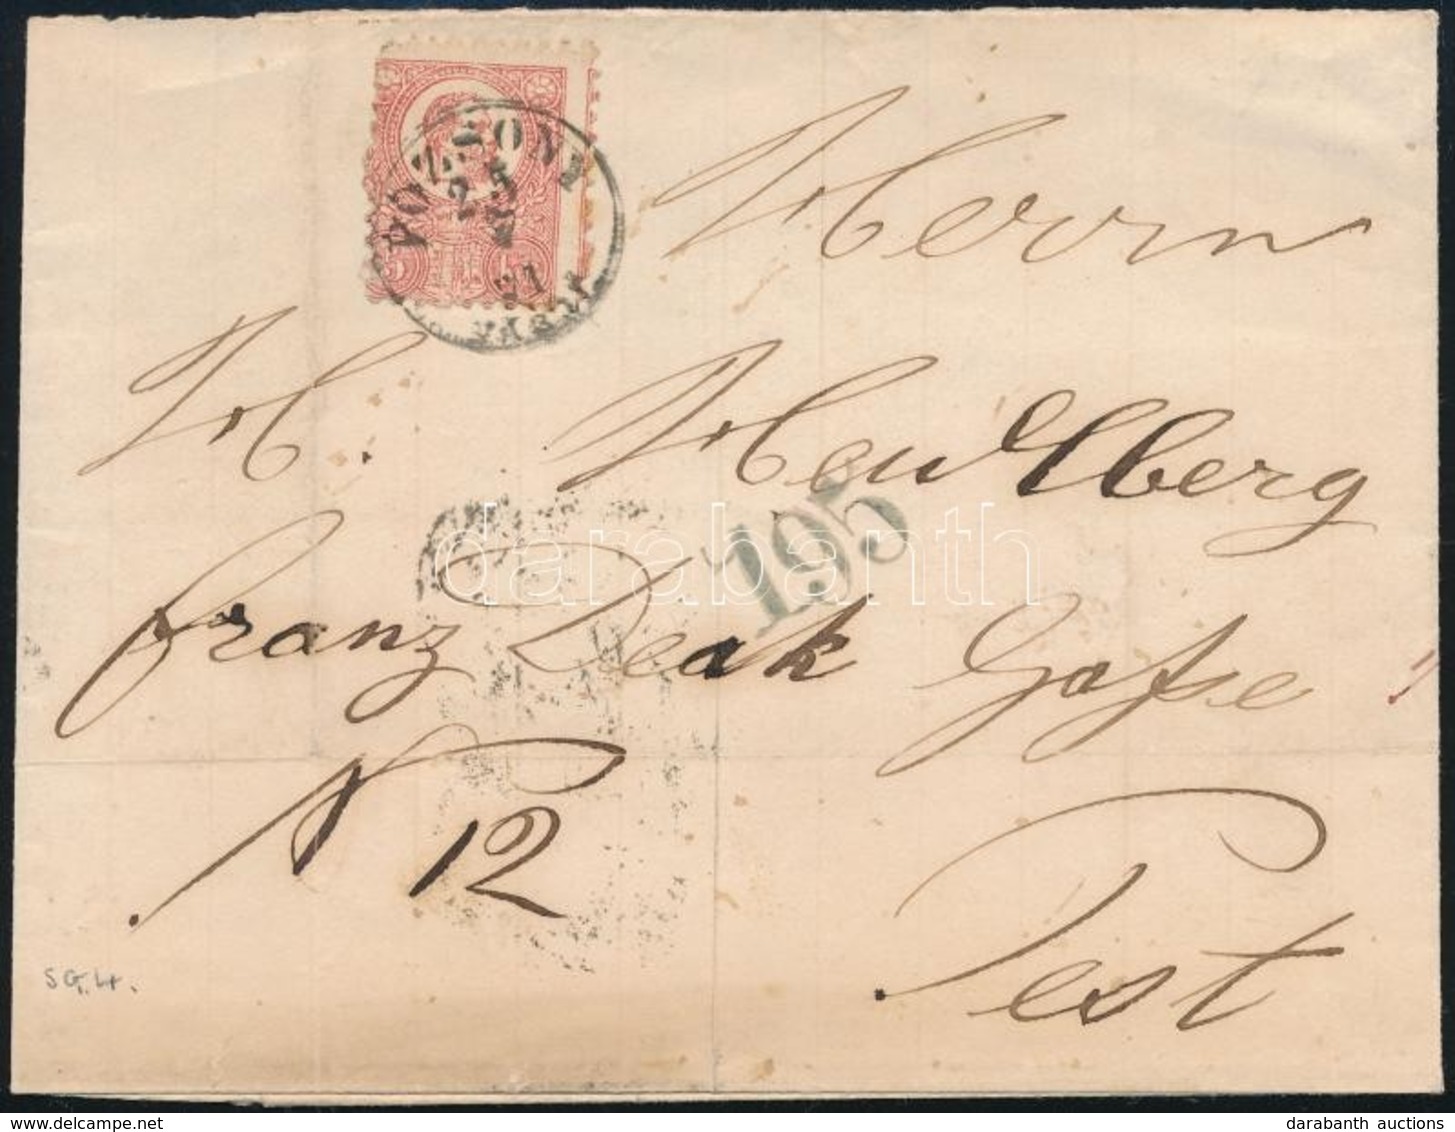 POZSONY
VÁROS
Herrn
H. Heidlberg
195
darabanth
Franz Deak Gasse
N 12
Pest
SG.4.
darabanth auctions
delcampe.net